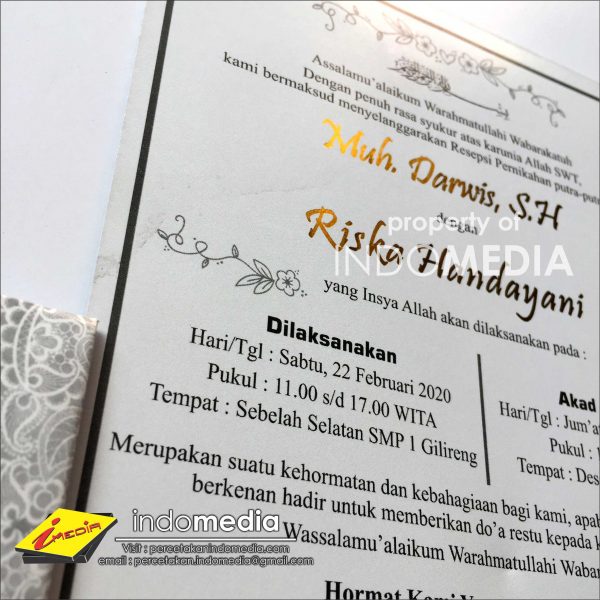 Assalamu'alaikum Warahmatullahi Wabarakatuh
Dengan penuh rasa syukur atas karunia Allah SWT,
kami bermaksud menyelenggarakan Resepsi Pernikahan putra-put
Muh. Darwis, S.H
dengan
Riska Handayani
property of
INDOMEDIA
yang Insya Allah akan dilaksanakan pada :
Dilaksanakan
Hari/Tgl : Sabtu, 22 Februari 2020
Pukul : 11.00 s/d 17.00 WITA
Tempat : Sebelah Selatan SMP 1 Gilireng
Akad
Hari/Tgl : Jum'a
Pukul :
Tempat : Des
Merupakan suatu kehormatan dan kebahagiaan bagi kami, apab
berkenan hadir untuk memberikan do'a restu kepada k
Wassalamu'alaikum Warahmatullahi Wabar
Hormat Kami Y
i MEDIA
indomedia
Visit : percetakanindomedia.com
email : percetakan.indomedia@gmail.com